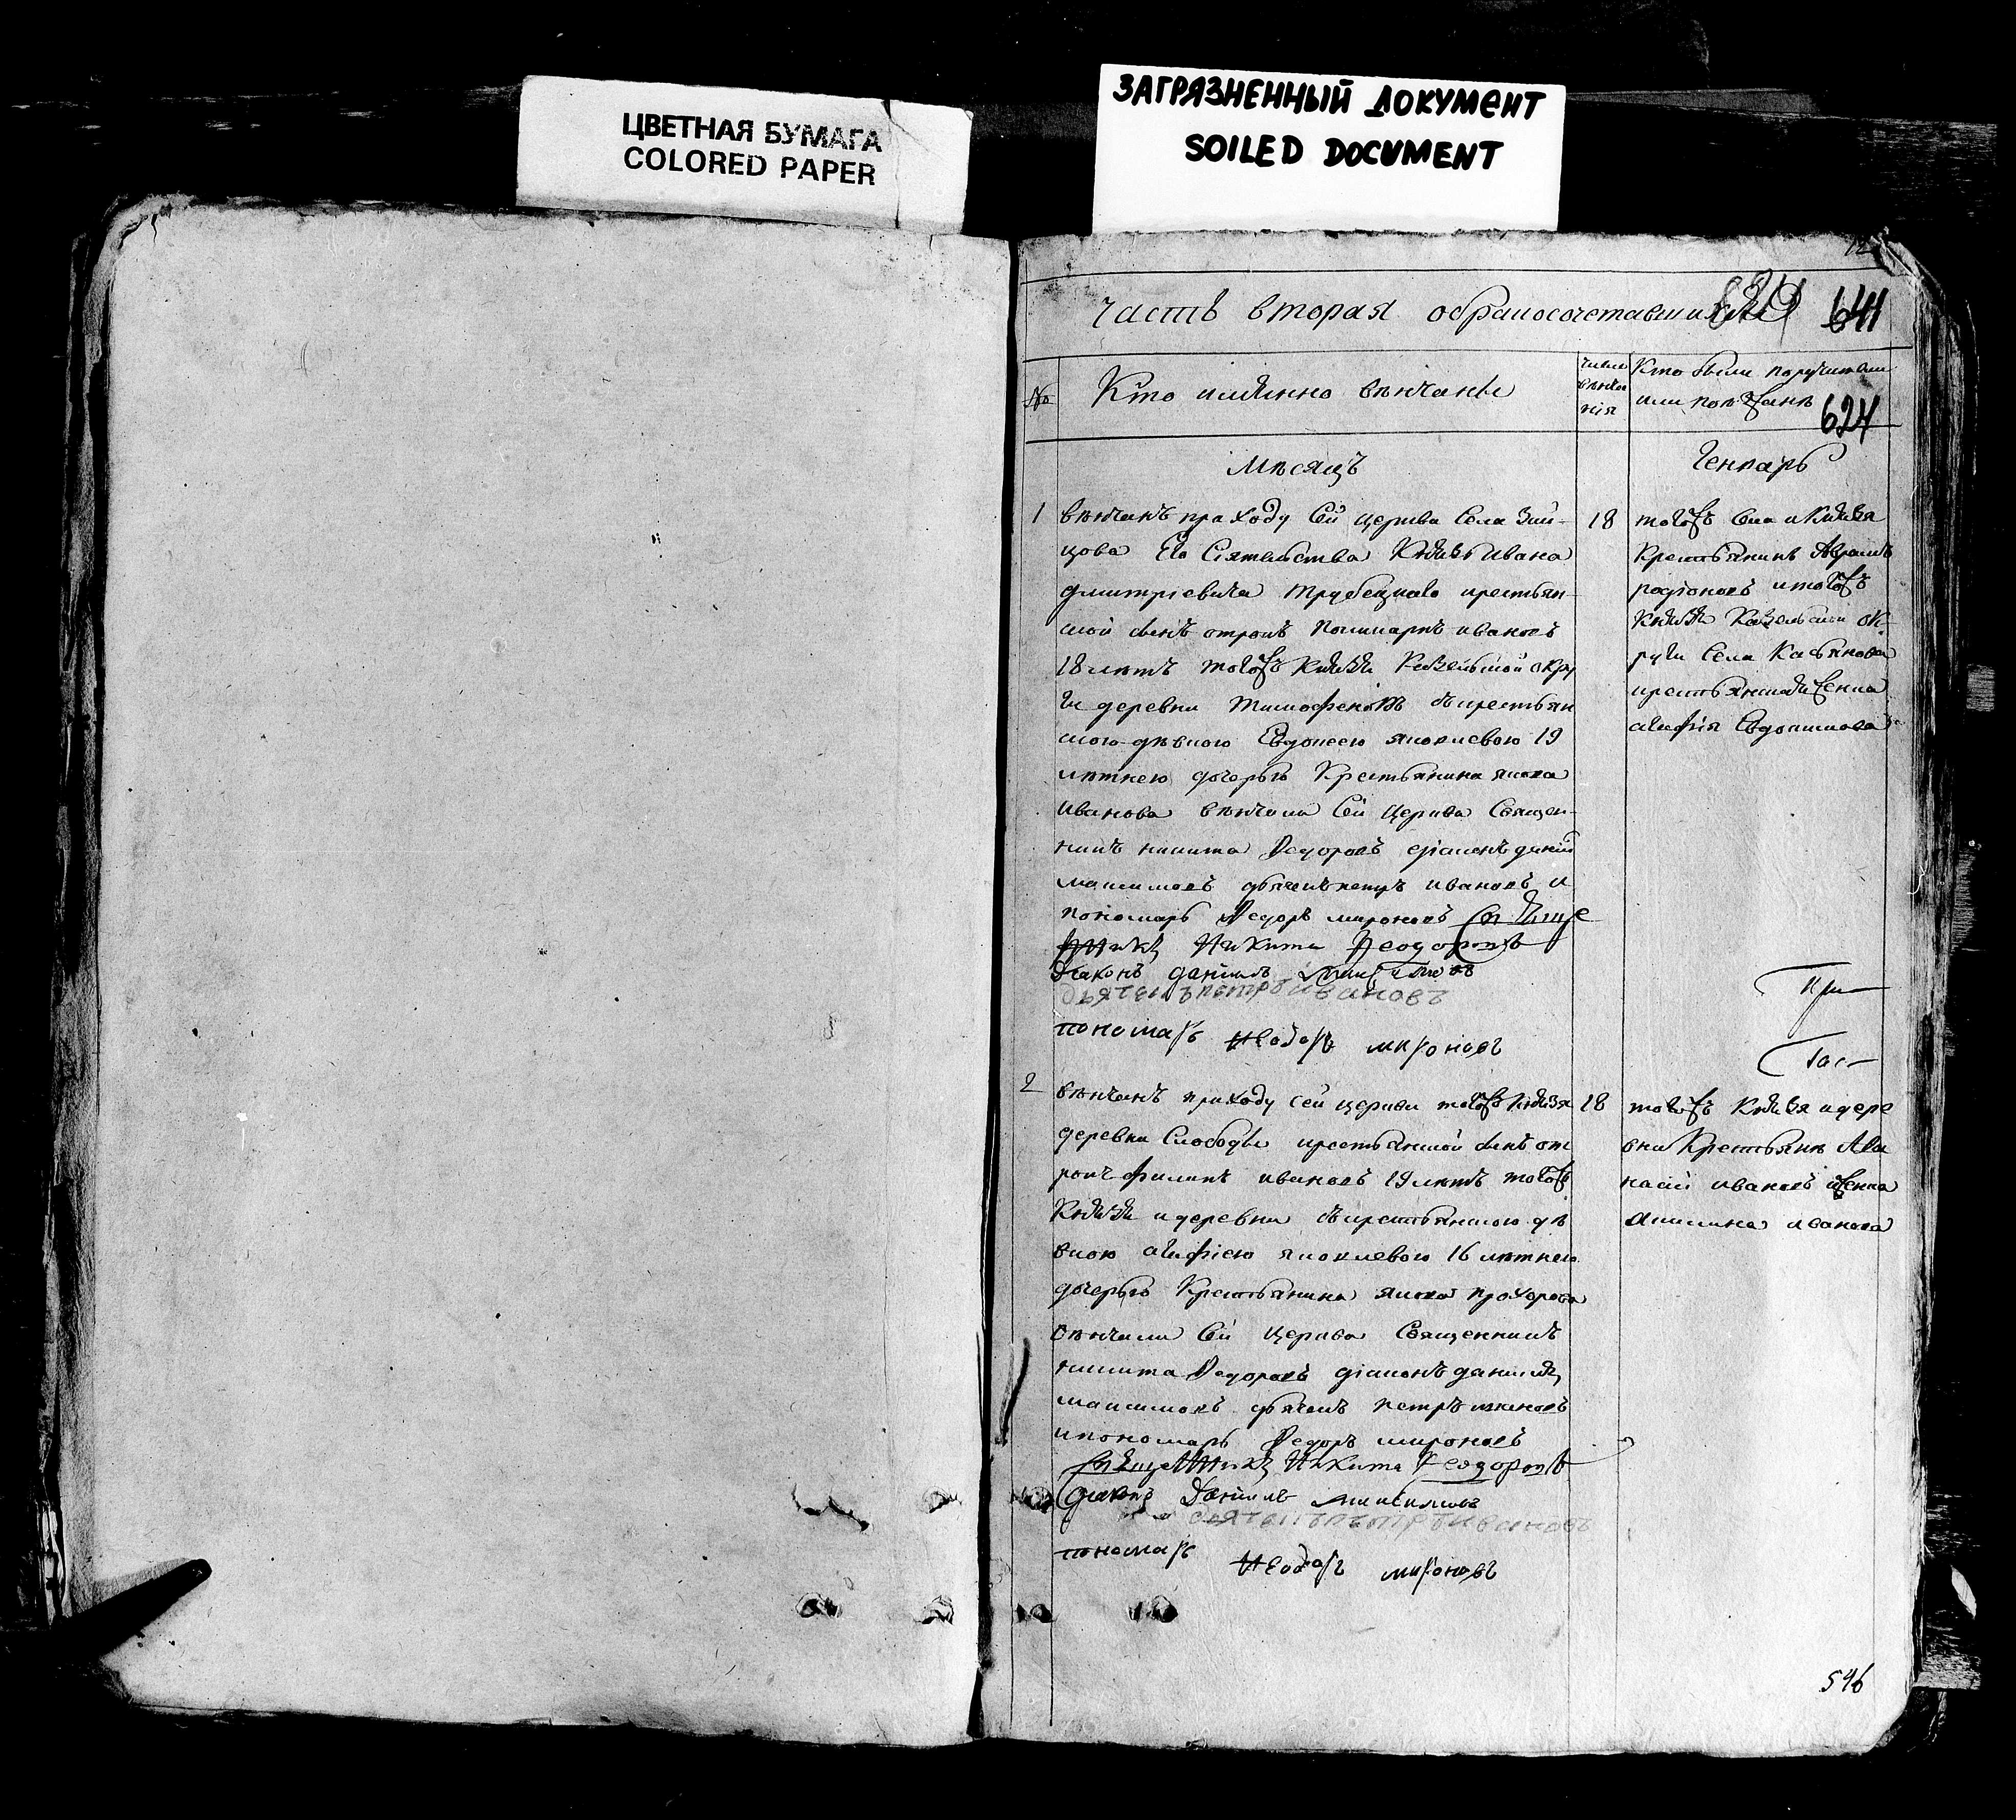 ЦВЕТНАЯ БУМАГА
COLORED PAPER
ЗАГРЯЗНЕННЫЙ ДОКУМЕНТ
SOILED DOCUMENT
12
часть вторая обракосочетавшихся
641
№
Кто имянно венчаны
число венча ния
Кто были поручители
или поезжанѣ
624
Мѣсяцъ
Генварь
1
вѣнчанъ приходу Сей церкви Села Зай-
цова Его Сіятельства Князь Ивана
Дмитріевича Трубецкаго крестьян-
ской сынъ отрокъ Поликарпъ ивановъ
18 лѣтъ тогожъ Князя Козельской окру
ги деревни Тимофеновъ съ крестьян
скою девкою Евдокеею яковлевою 19
лѣтнею дочерью Крестьянина якова
Иванова вѣнчали Сей Церкви Священ-
никъ никита Ѳедоровъ діаконъ данiил
максимовъ дьячекъ петръ ивановъ и
пономарь Ѳедоръ мироновъ Священ
никъ Никита Ѳеодоровъ
Діаконъ данiилъ Максимовъ
дьячекъ петръ ивановъ
пономарь Ѳеодоръ мироновъ
18
тогожъ Села и Князя
Крестьянинъ Аврамъ
родіоновъ и тогожъ
Князя Козельской ок-
руги Села Касьянова
крестьянская Жонка
агафія Евдокимова
При
Гас
2
вѣнчанъ приходу сей церкви тогожъ Князя
деревни Слободы крестьянской сынъ от
рокъ филипъ ивановъ 19 лѣтъ тогожъ
Князя и деревни съ крестьянскою дѣ
вкою агафіею яковлевою 16 лѣтнею
дочерью Крестьянина якова прохорова
вѣнчали Сей Церкви Священникъ
никита Ѳедоровъ діаконъ данiилъ
максимовъ дьячекъ петръ ивановъ
и пономарь Ѳедоръ мироновъ
Священникъ Никита Ѳеодоровъ
Діаконъ Данiилъ максимовъ
дьячекъ петръ ивановъ
пономарь Ѳеодоръ мироновъ
18
тогожъ Князя и дере
вни Крестьянѣ Афа
насій ивановъ Жонка
акилина иванова
596